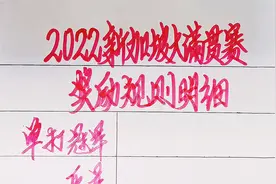 2022新加坡大满贯赛
奖励规则明细
单打冠军